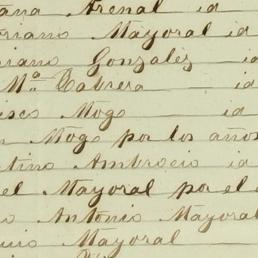 ana Arenal id
oriano Mayoral id
riano Gonzalez id
Mª Cabrera id
isco Mogo id
n Mogo por los años
tino Ambrocio id
el Mayoral por el
io Antonio Mayoral
quio Mayoral